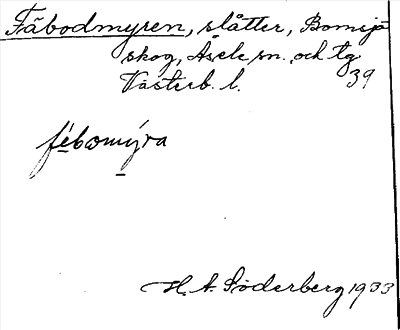 Fäbodmyren, slåtter, Bomsjö
skog, Åsele sn. och tg
Västerb. l. 39
fébomýra
H. A. Söderberg 1933